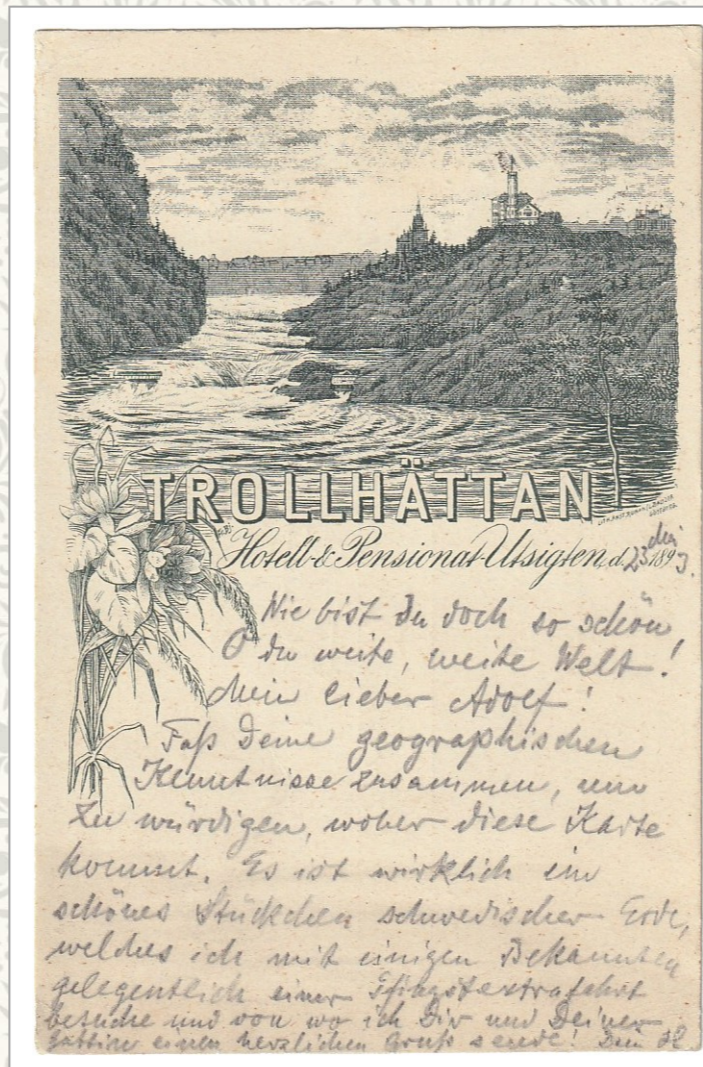 TROLLHÄTTAN
Hotell & Pensionat Utsigten, d. 23 Mai 1893.
Wie bist Du doch so schön,
O du weite, weite Welt!
Mein lieber Adolf!
Faß Deine geographischen
Kenntnisse zusammen, um
zu würdigen, woher diese Karte
kommt. Es ist wirklich ein
schönes Stückchen schwedischer Erde,
welches ich mit einigen Bekannten
gelegentlich einer Pfingstextrafahrt
besuche und von wo ich Dir und Deiner
Gattin einen herzlichen Gruß sende! Dein